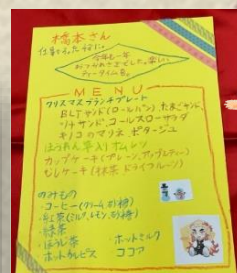 橋本さん
今年も一年
おつかれさまでした。楽しい
ティータイムを。
MENU
クリスマスブランチプレート
BLTサンド(ロールパン)、たまごサンド、
ツナサンド、コールスローサラダ
キノコのマリネ、ポタージュ
ほうれん草入りオムレツ
カップケーキ(プレーン、アップルティー)
むしケーキ(抹茶、ドライフルーツ)
のみもの
・コーヒー(クリーム、砂糖)
・紅茶(ミルク、レモン、砂糖)
・緑茶
・ほうじ茶
・ホットミルク
・ホットカルピス
ココア